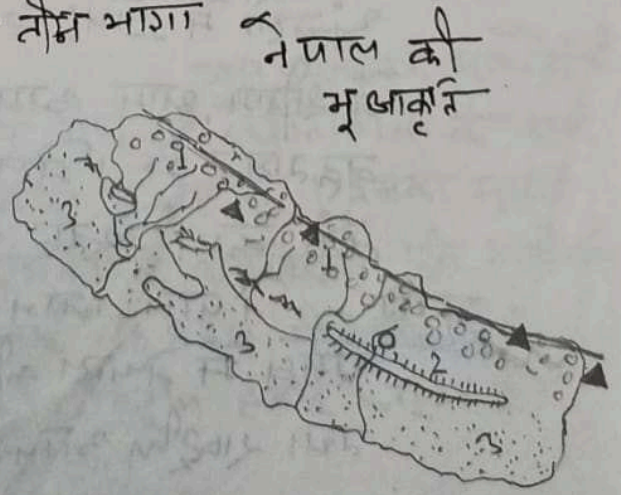 तीन भागा
नेपाल की
भू आकृति
1
3
1
3
6
2
3